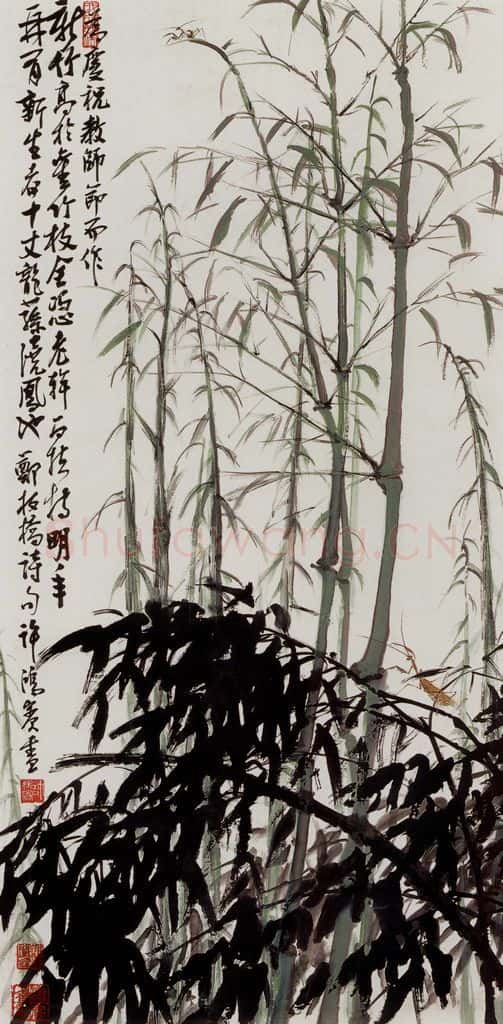 為慶祝教師節而作
新竹高於舊竹枝全憑老幹為扶持明年
再有新生者十丈龍孫繞鳳池 鄭板橋詩句 許鴻賓畫
Shufawang.CN